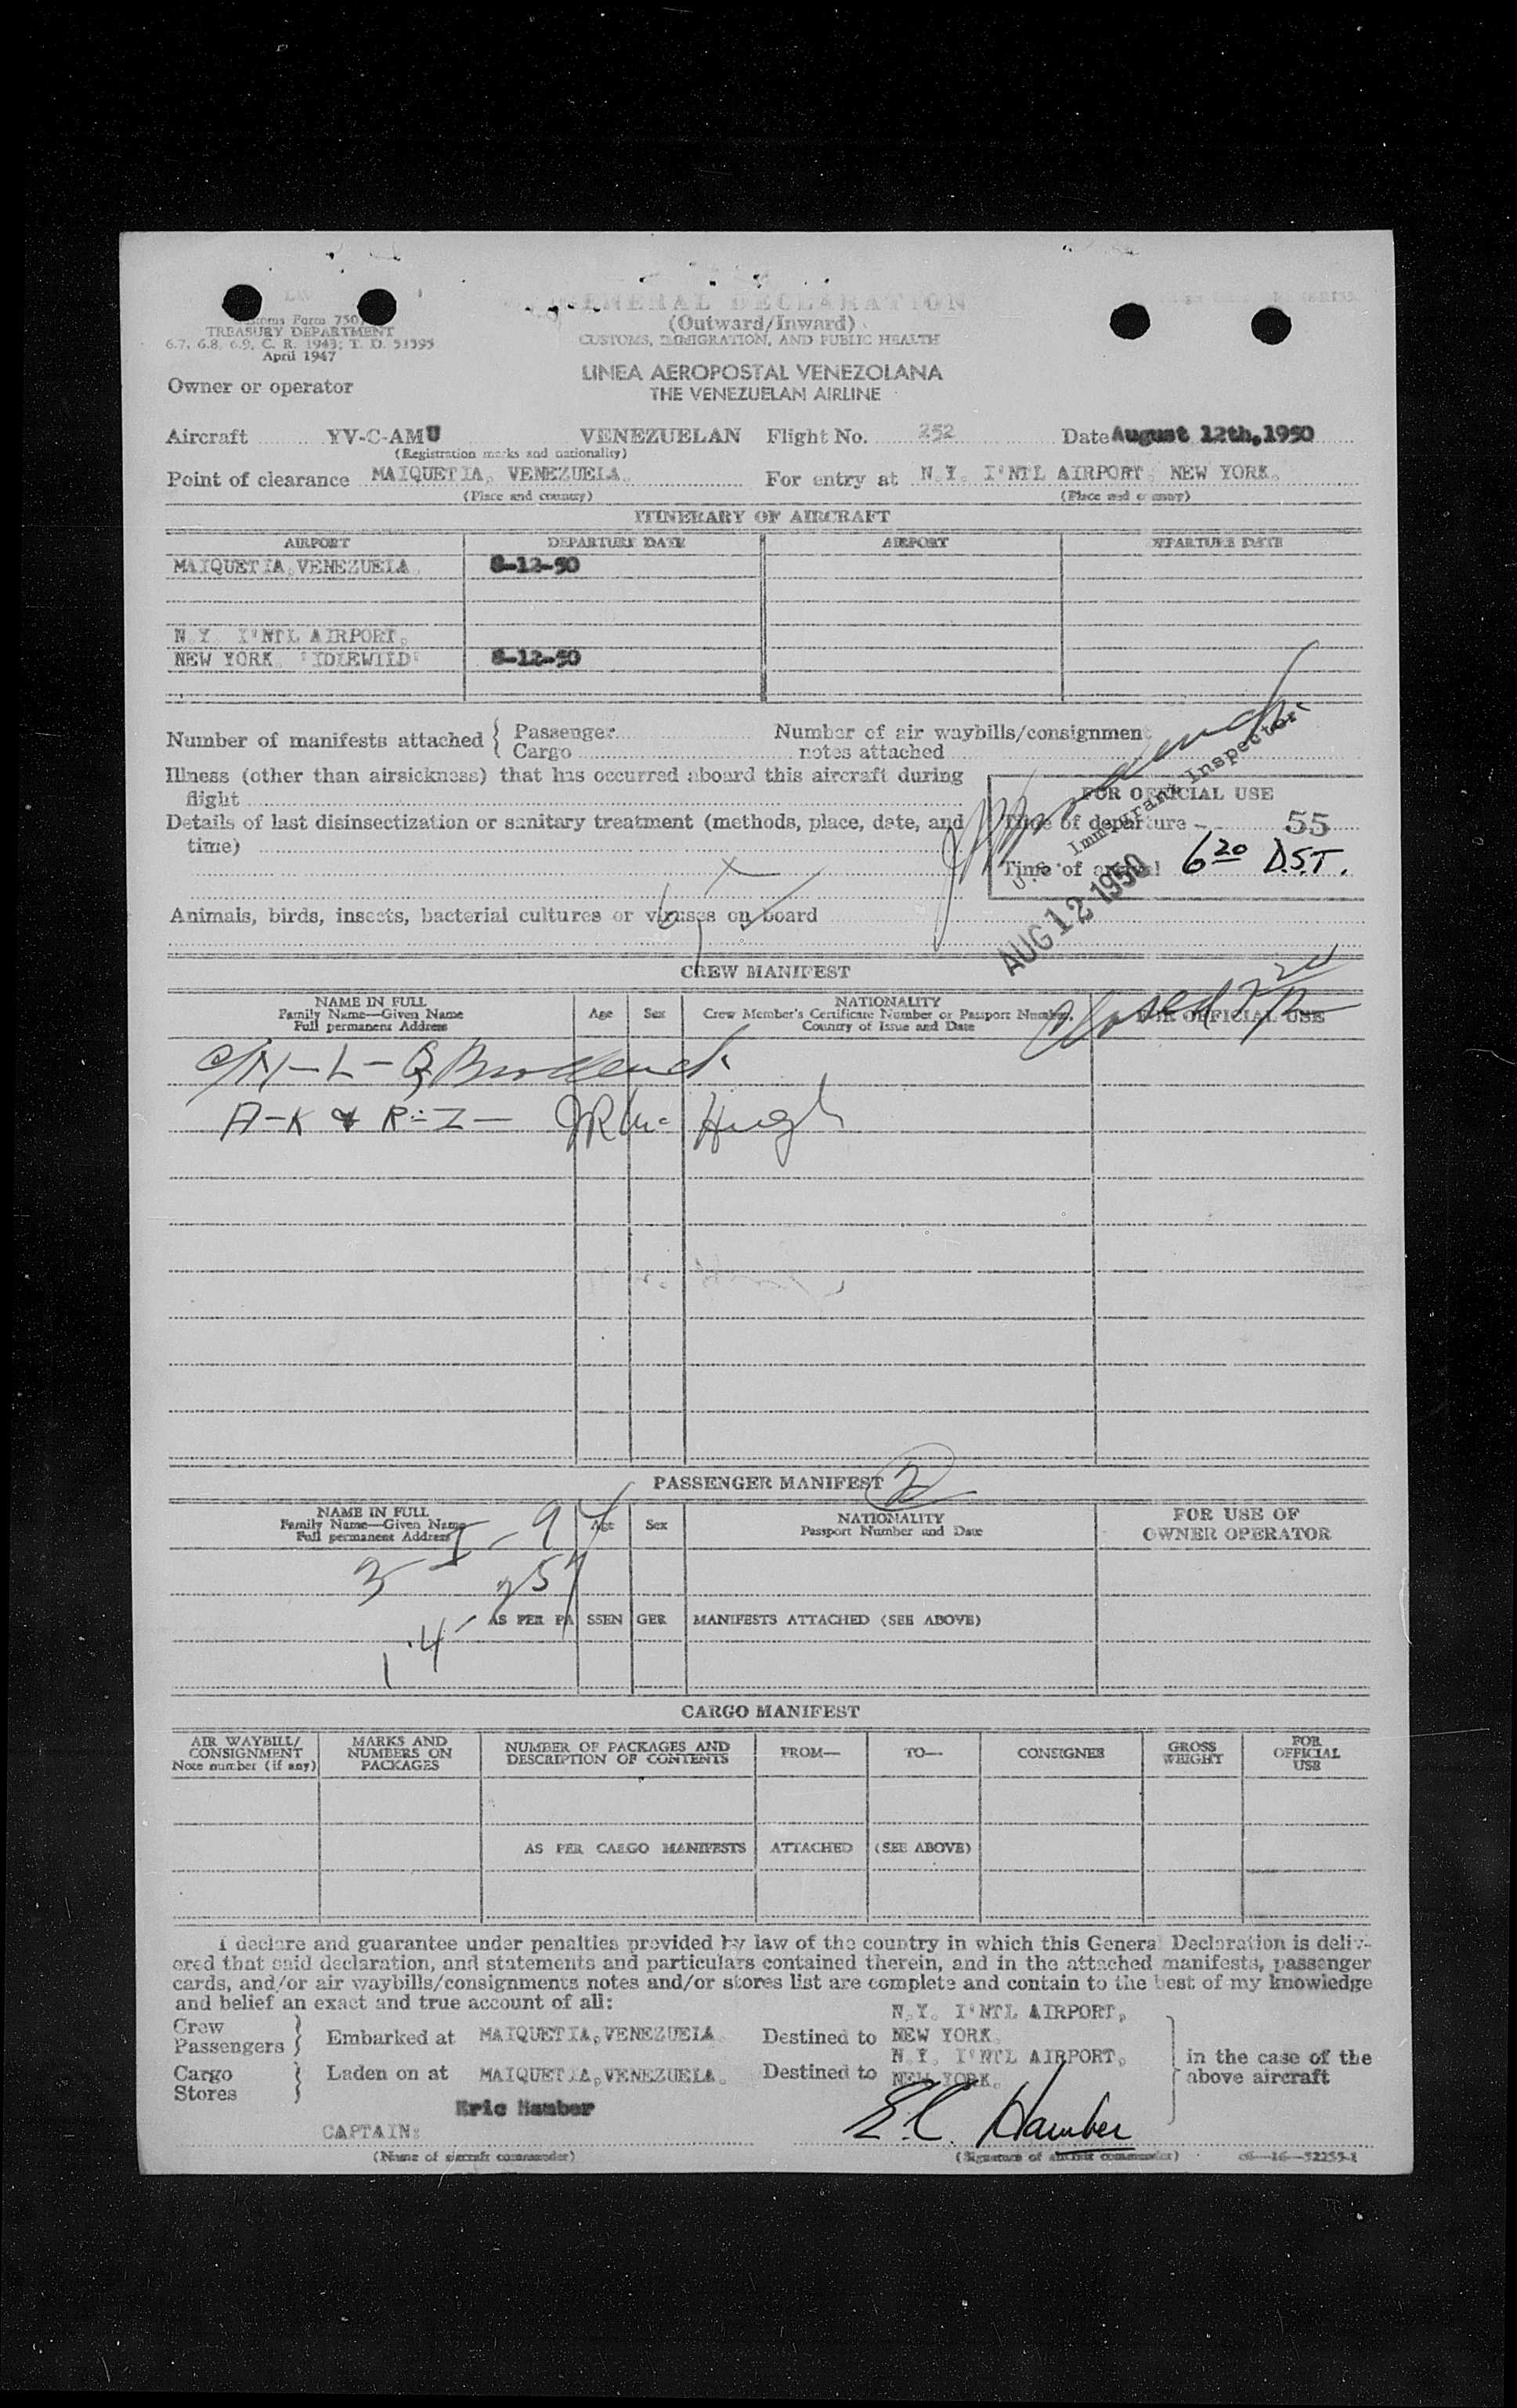 GENERAL DECLARATION
(Outward/Inward)
CUSTOMS, IMMIGRATION, AND PUBLIC HEALTH
Customs Form 750
TREASURY DEPARTMENT
6.7, 6.8, 6.9, C. R. 1943; T. D. 51395
April 1947
LINEA AEROPOSTAL VENEZOLANA
THE VENEZUELAN AIRLINE
Owner or operator
Aircraft YV-C-AMU VENEZUELAN Flight No. 252 Date August 12th, 1950
(Registration marks and nationality)
Point of clearance MAIQUETIA, VENEZUELA. For entry at N.Y. I'NTL AIRPORT, NEW YORK.
(Place and country) (Place and country)
ITINERARY OF AIRCRAFT
AIRPORT DEPARTURE DATE AIRPORT DEPARTURE DATE
MAIQUETIA, VENEZUELA. 8-12-50
N.Y. I'NTL AIRPORT,
NEW YORK. "IDLEWILD" 8-12-50
Number of manifests attached { Passenger Number of air waybills/consignment
Cargo notes attached
Illness (other than airsickness) that has occurred aboard this aircraft during
flight
FOR OFFICIAL USE
Details of last disinsectization or sanitary treatment (methods, place, date, and
time)
Time of departure 55
Time of arrival 6 20 D.S.T.
U.S. Immigrant Inspector
AUG 12 1950
Animals, birds, insects, bacterial cultures or viruses on board
CREW MANIFEST
Closed
NAME IN FULL
Family Name—Given Name
Full permanent Address
Age Sex NATIONALITY
Crew Member's Certificate Number or Passport Number,
Country of Issue and Date
FOR OFFICIAL USE
A-K & R-Z — JR Mc Hugh
PASSENGER MANIFEST 2
NAME IN FULL
Family Name—Given Name
Full permanent Address
Age Sex NATIONALITY
Passport Number and Date
FOR USE OF
OWNER OPERATOR
AS PER PASSENGER MANIFESTS ATTACHED (SEE ABOVE)
CARGO MANIFEST
AIR WAYBILL/
CONSIGNMENT
Note number (if any)
MARKS AND
NUMBERS ON
PACKAGES
NUMBER OF PACKAGES AND
DESCRIPTION OF CONTENTS
FROM— TO— CONSIGNEE
GROSS
WEIGHT
FOR
OFFICIAL
USE
AS PER CARGO MANIFESTS ATTACHED (SEE ABOVE)
I declare and guarantee under penalties provided by law of the country in which this General Declaration is deliv-
ered that said declaration, and statements and particulars contained therein, and in the attached manifests, passenger
cards, and/or air waybills/consignments notes and/or stores list are complete and contain to the best of my knowledge
and belief an exact and true account of all:
N.Y. I'NTL AIRPORT,
Crew
Passengers } Embarked at MAIQUETIA, VENEZUELA. Destined to NEW YORK.
N.Y. I'NTL AIRPORT,
Cargo
Stores } Laden on at MAIQUETIA, VENEZUELA. Destined to NEW YORK.
in the case of the
above aircraft
Eric Hamber
CAPTAIN: E.C. Hamber
(Name of aircraft commander) (Signature of aircraft commander) c6—16—52255-1